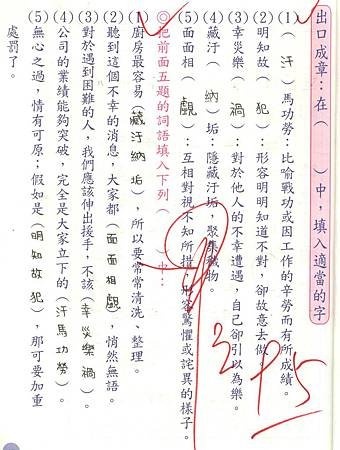 出口成章：在（　）中，填入適當的字
(1)（汗）馬功勞：比喻戰功或因工作的辛勞而有所成績。
(2)明知故（犯）：形容明明知道不對，卻故意去做。
(3)幸災樂（禍）：對於他人的不幸遭遇，自己卻引以為樂。
(4)藏汙（納）垢：隱藏汙垢，聚集穢物。
(5)面面相（覷）：互相對視不知所措，形容驚懼或詫異的樣子。
◎把前面五題的詞語填入下列（　）中：
(1)廚房最容易（藏汙納垢），所以要常常清洗、整理。
(2)聽到這個不幸的消息，大家都（面面相覷），悄然無語。
(3)對於遇到困難的人，我們應該伸出援手，不該（幸災樂禍）。
(4)公司的業績能夠突破，完全是大家立下的（汗馬功勞）。
(5)無心之過，情有可原；假如是（明知故犯），那可要加重
處罰了。